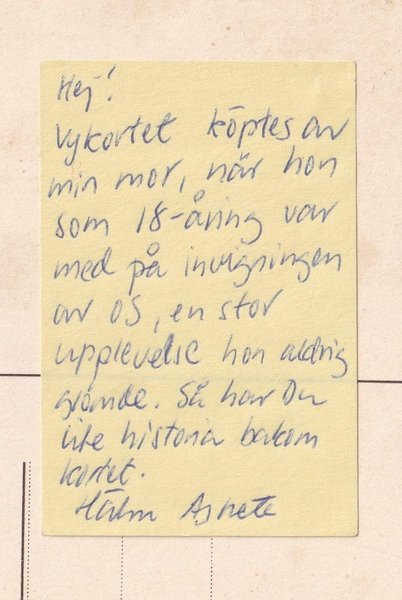 Hej!
Vykortet köptes av
min mor, när hon
som 18-åring var
med på invigningen
av OS, en stor
upplevelse hon aldrig
glömde. Så har Du
lite historia bakom
kortet.
Hälsn Agnete